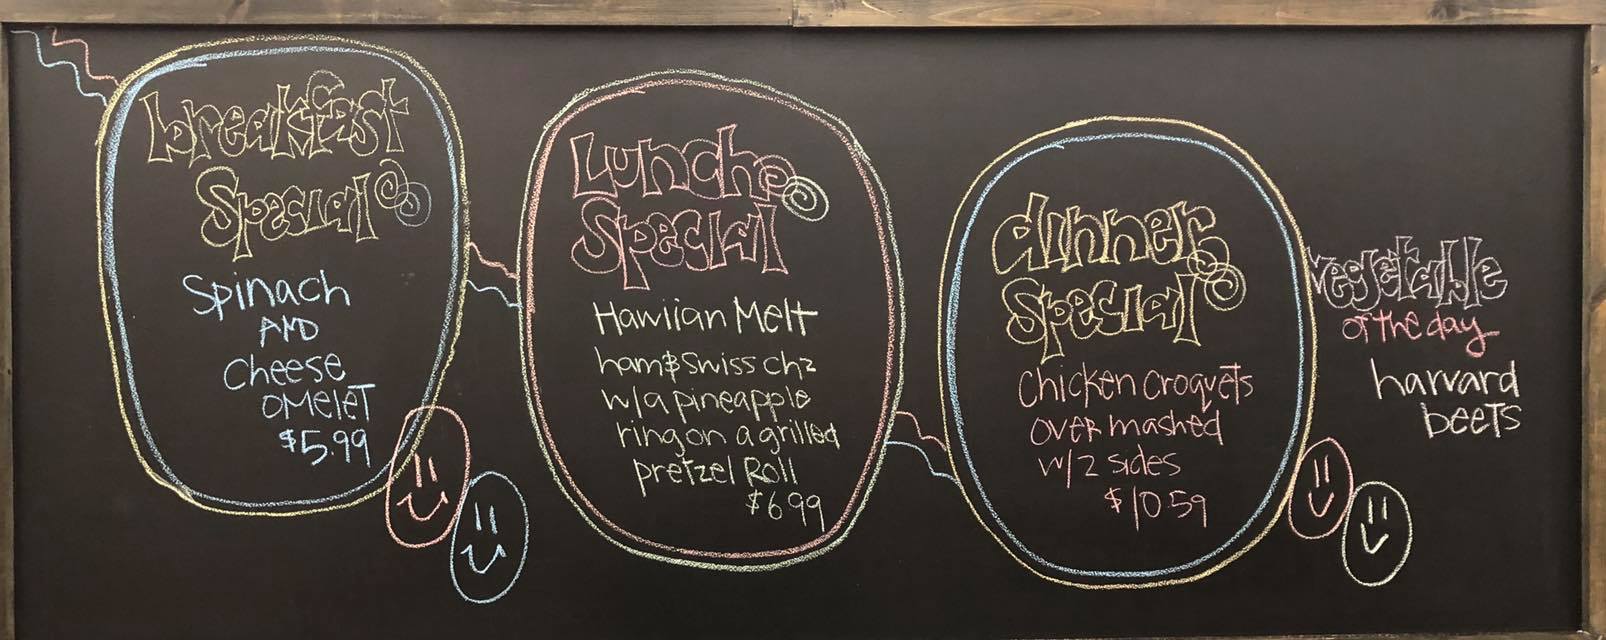 breakfast
Special
Spinach
AND
cheese
OMELET
$5.99
Lunch
Special
Hawiian Melt
ham & Swiss chz
w/a pineapple
ring on a grilled
pretzel Roll
$6.99
dinner
Special
chicken croquets
over mashed
w/2 sides
$10.59
vegetable
of the day
harvard
beets